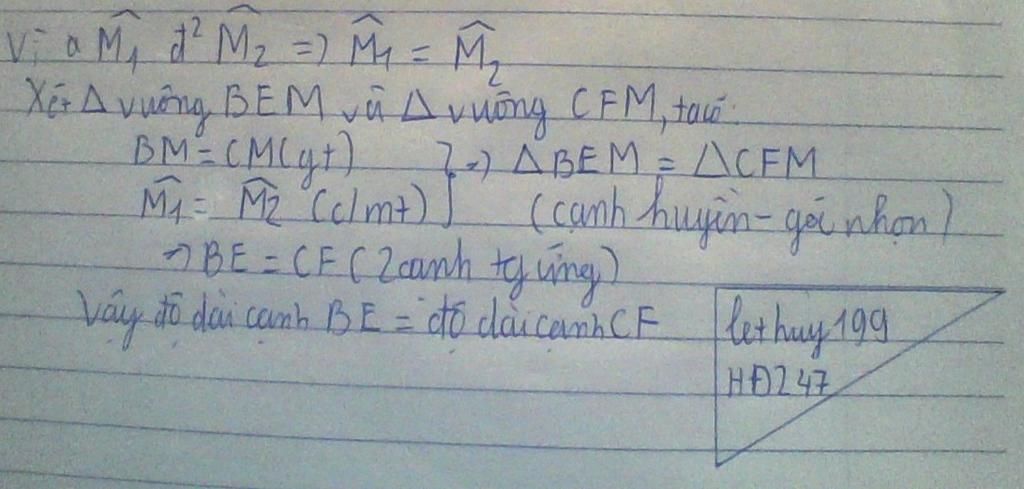 Vì a M̂1 đ² M̂2 => M̂1 = M̂2
Xét Δ vuông BEM và Δ vuông CFM, ta có:
BM = CM (gt) } => ΔBEM = ΔCFM
M̂1 = M̂2 (c/mt) (cạnh huyền - góc nhọn)
=> BE = CF (2 cạnh tg ứng)
Vậy độ dài cạnh BE = độ dài cạnh CF
lethuy199
HĐ247